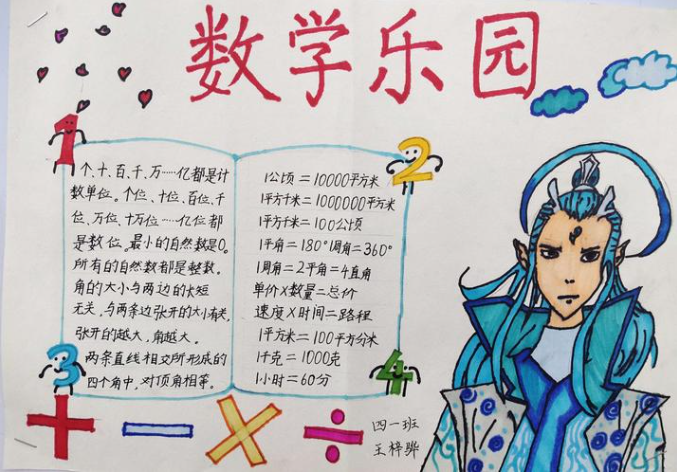 数学乐园
1
个、十、百、千、万……亿都是计
数单位。个位、十位、百位、千
位、万位、十万位……亿位都
是数位。最小的自然数是0。
所有的自然数都是整数。
角的大小与两边的长短
无关，与两条边张开的大小有关，
张开的越大，角越大。
两条直线相交所形成的
四个角中，对顶角相等。
2
1公顷＝10000平方米
1平方千米＝1000000平方米
1平方千米＝100公顷
1平角＝180°1周角＝360°
1周角＝2平角＝4直角
单价×数量＝总价
速度×时间＝路程
1平方米＝100平方分米
1千克＝1000克
1小时＝60分
3
4
＋ － × ÷
四一班
王梓骅